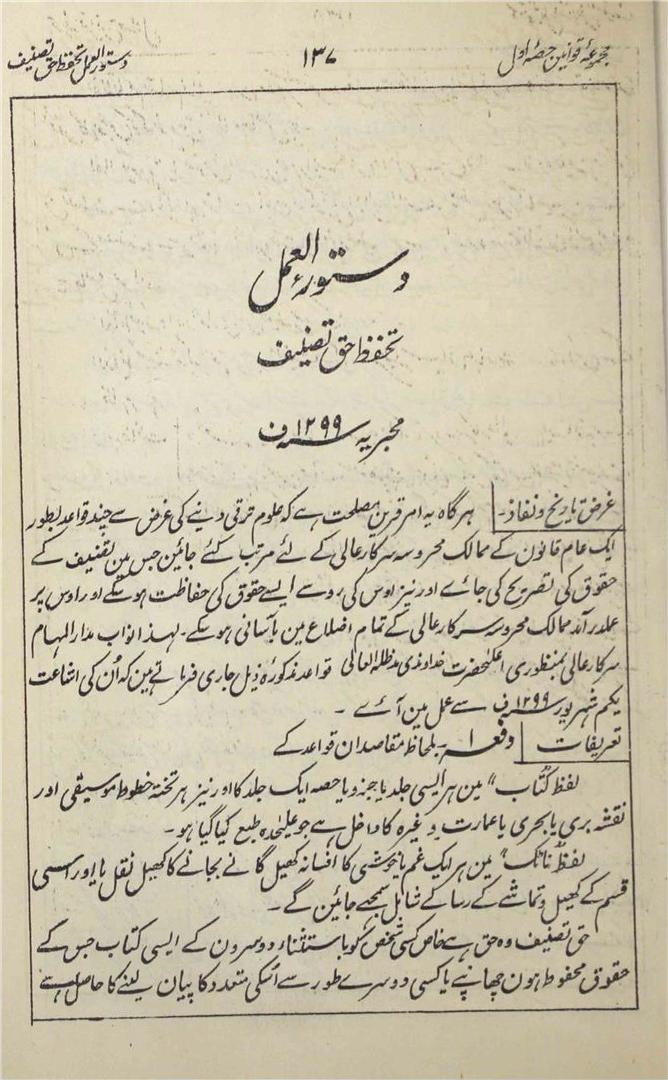 مجموعۂ قوانین حصۂ اول
۱۳۷
دستور العمل تحفظ حق تصنیف
دستور العمل
تحفظ حق تصنیف
مجریہ ۱۲۹۹ ف
غرض تاریخ و نفاذ۔ ہرگاہ یہ امر قرین مصلحت ہے کہ علوم ترقی دینے کی غرض سے چند قواعد بطور
ایک عام قانون کے ممالک محروسہ سرکارعالی کے لئے مرتب کئے جائین جس مین تصنیف کے
حقوق کی تصریح کی جائے اور نیز اوس کی رو سے ایسے حقوق کی حفاظت ہوسکے اور اوس پر
عملدرآمد ممالک محروسہ سرکارعالی کے تمام اضلاع مین بآسانی ہوسکے۔ لہذا نواب مدار المہام
سرکارعالی بمنظوری اعلیٰحضرت خداوندی مدظلہ العالی قواعد مذکورۂ ذیل جاری فرماتے ہین کہ اُن کی اشاعت
یکم شہریور ۱۲۹۹ ف سے عمل مین آئے۔
تعریفات دفعہ ۱۔ بلحاظ مقاصد ان قواعد کے
لفظ "کتاب" مین ہر ایسی جلد یا جز و یا حصہ ایک جلد کا اور نیز ہر تختہ خطوط موسیقی اور
نقشہ بری یا بحری یا عمارت وغیرہ کا داخل ہے جو علیٰحدہ طبع کیا گیا ہو۔
لفظ "ناٹک" مین ہر ایک غم یا خوشی کا افسانہ کھیل گانے بجانے کا کھیل نقل یا اور اسی
قسم کے کھیل و تماشے کے رسالے شامل سمجھے جائین گے۔
حق تصنیف وہ حق ہے خاص کسی شخص کو باستثناء دوسرون کے ایسی کتاب جس کے
حقوق محفوظ ہون چھاپنے یا کسی دوسرے طور سے اُسکی متعدد کاپیان لینے کا حاصل ہے